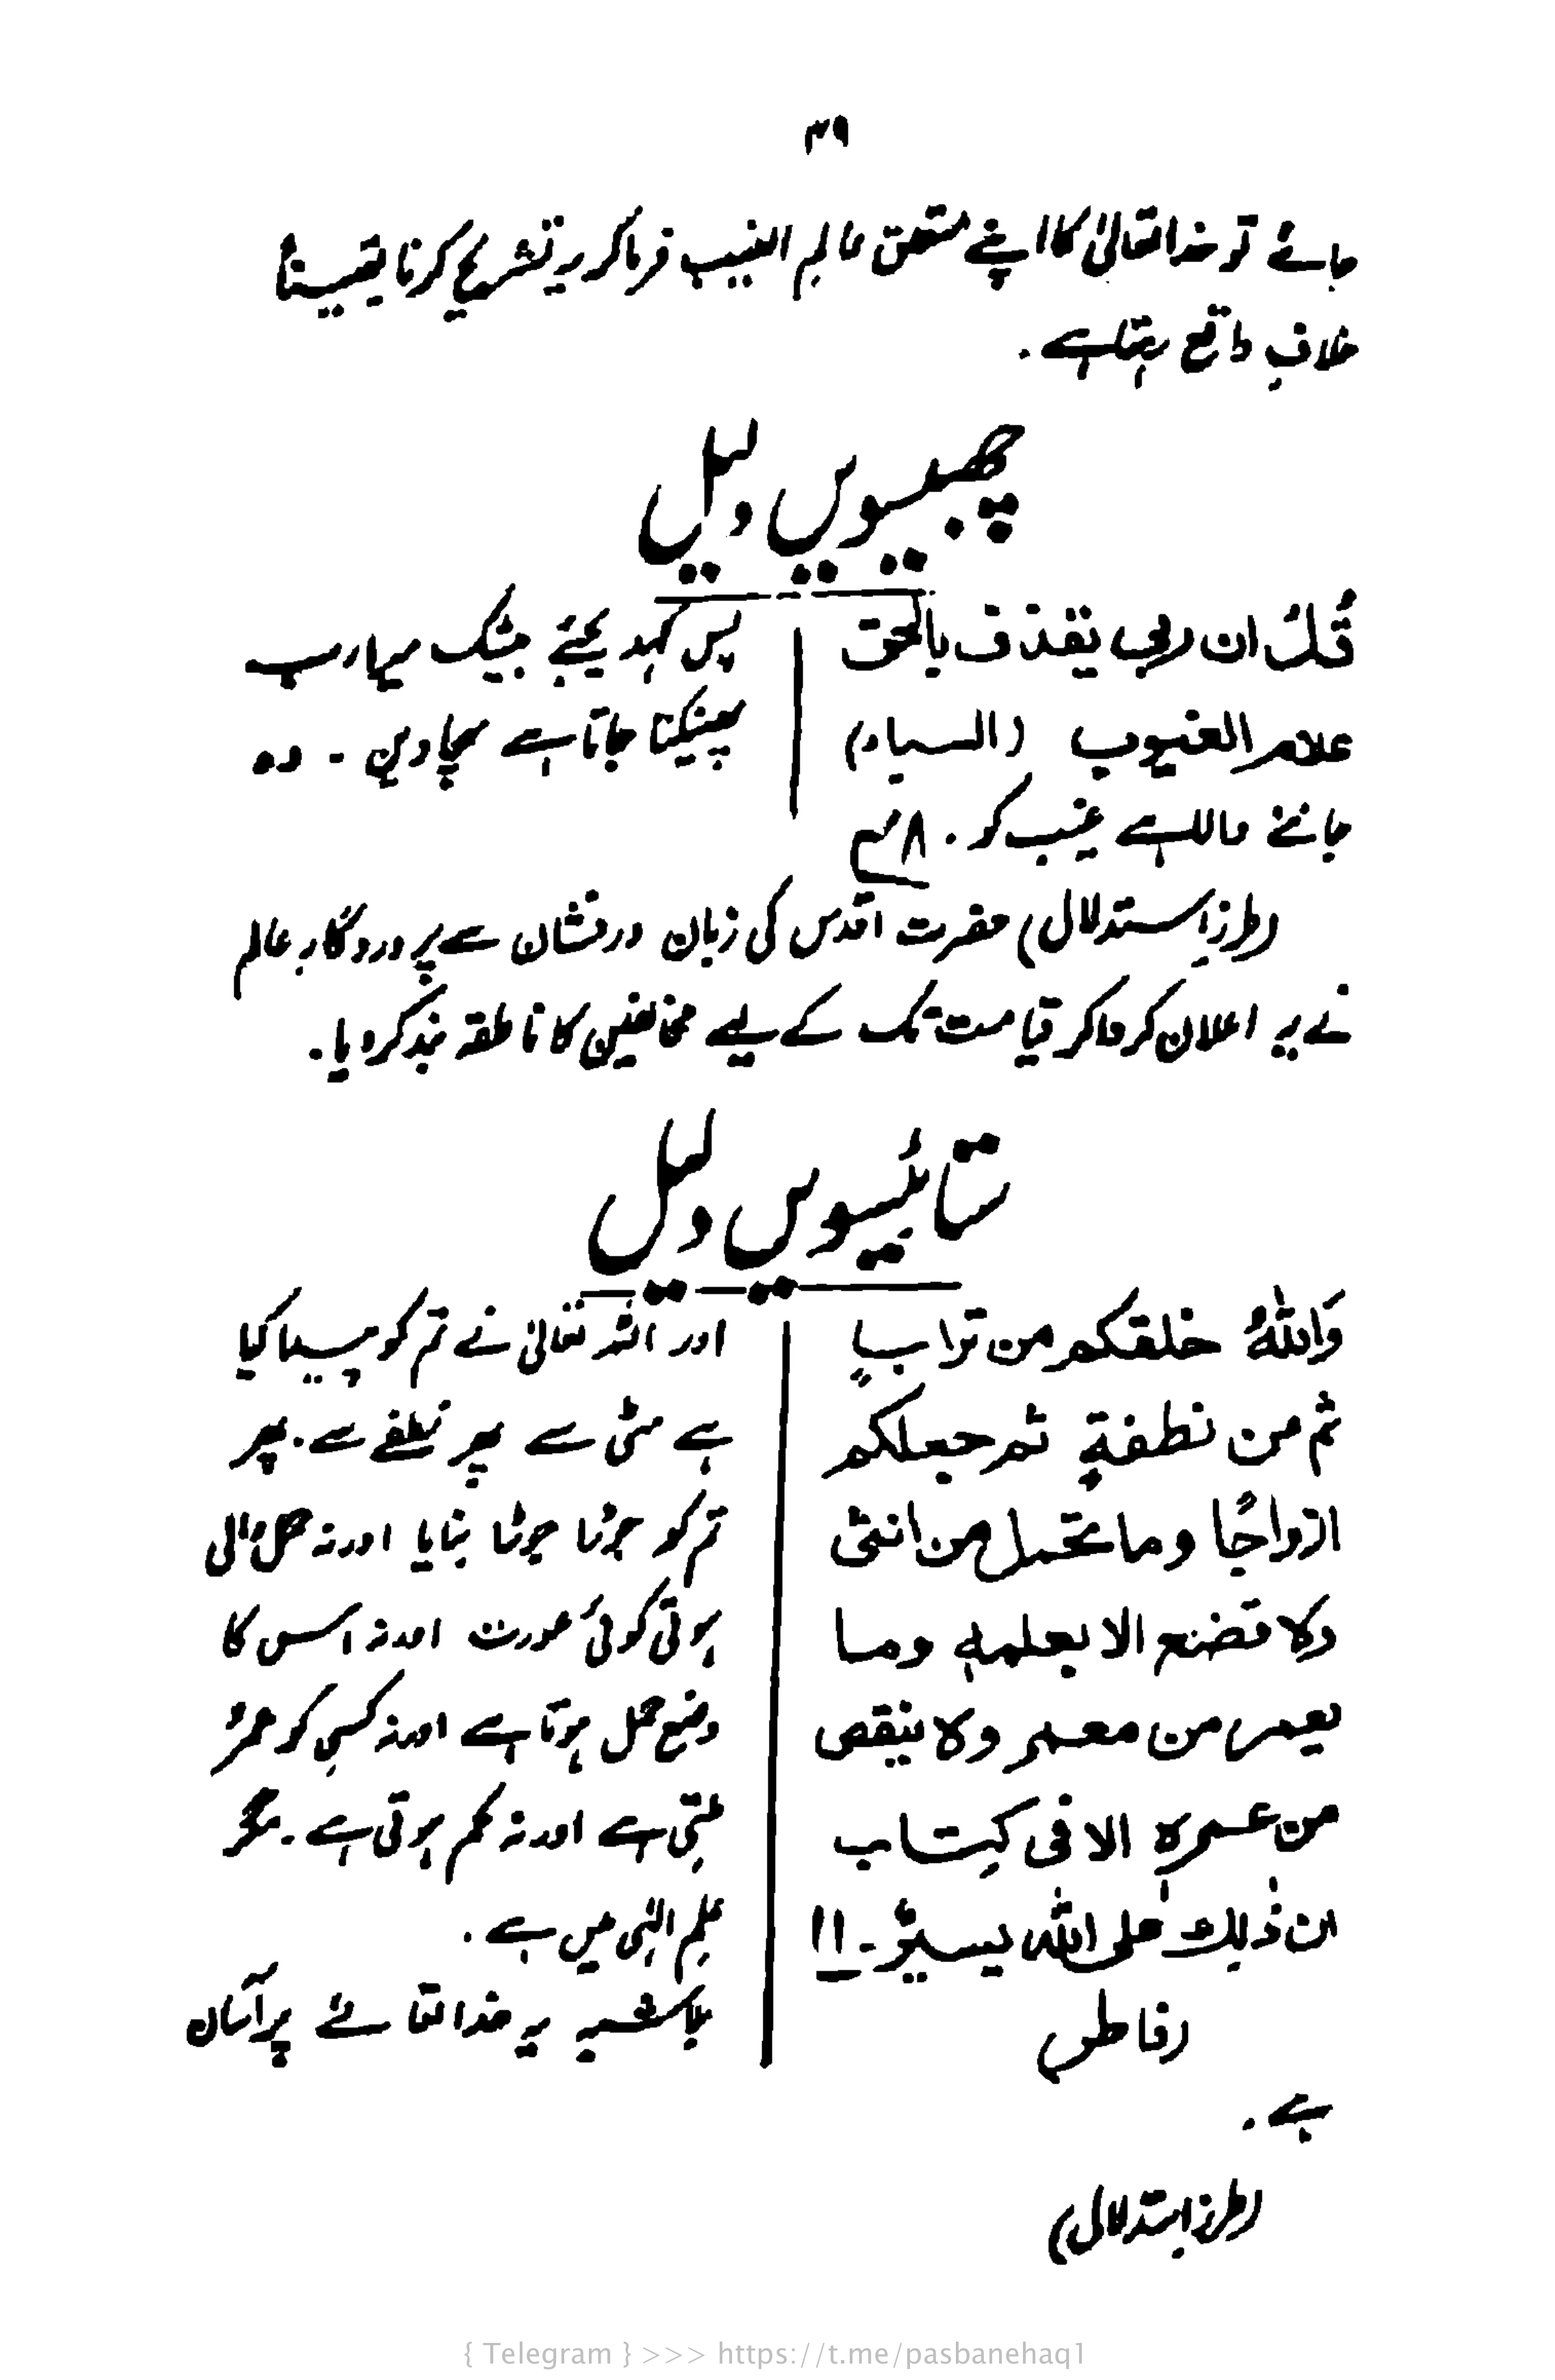 ۳۹
جائے تو خدا تعالیٰ کا اپنے متعلق عالم الغیب فرما کر یہ تشریح کرنا یقیناً
خلافِ واقع رہتا ہے۔
چھبیسویں دلیل
قُلْ ان ربی یقذف بالحق
علام الغیوب (السباء)
پس کہہ دیجئے بیشک میرا رب
پھینکتا جاتا ہے سچا دین - وہ
جاننے والا ہے غیب کو۔ ۴۸
(طرزِ استدلال) حضرت اقدس کی زبان درفشان سے پروردگارِ عالم
نے یہ اعلان کروا کر قیامت تک کے لیے مخالفین کا ناطقہ بند کر دیا۔
ستائیسویں دلیل
وَاللّٰهُ خلقکم من ترابٍ
ثم من نطفةٍ ثم جعلکم
ازواجًا وما تحمل من انثیٰ
ولا تضع الا بعلمہٖ وما
یعمر من معمر ولا ینقص
من عمرہٖ الا فی کتاب
ان ذٰلک علی اللّٰه یسیرٌ۔ ۱۱
(فاطر)
اور اللہ تعالیٰ نے تم کو پیدا کیا
ہے مٹی سے پھر نطفے سے۔ پھر
تم کو جوڑا جوڑا بنایا اور نہ حمل والی
ہوتی کوئی عورت اور نہ اس کا
وضع حمل ہوتا ہے اور نہ کسی کو عمر
ملتی ہے اور نہ کم ہوتی ہے۔ مگر
علم الٰہی میں ہے۔
بلاشبہ یہ خدا تعالےٰ پر آسان
ہے۔
(طرز استدلال)
{ Telegram } >>> https://t.me/pasbanehaq1